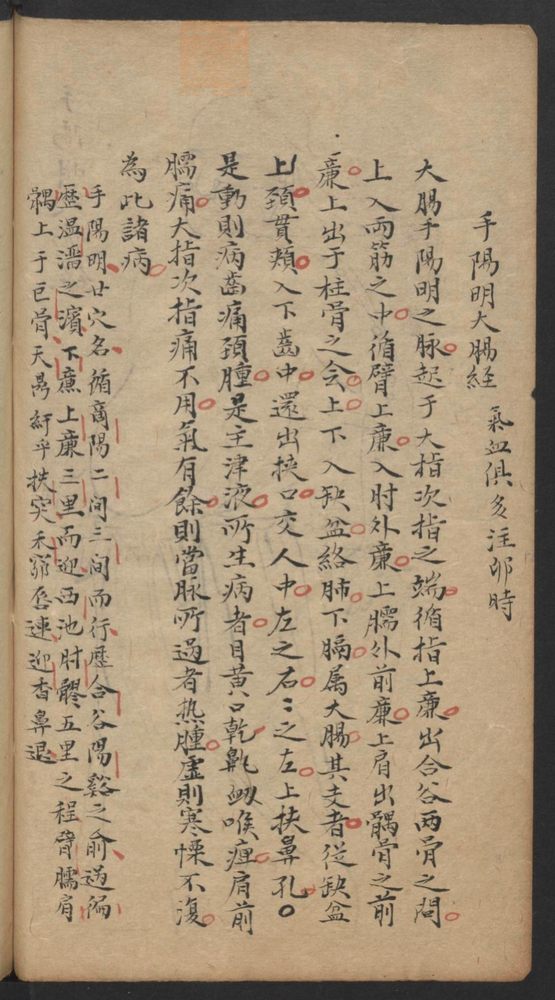 手陽明大腸経　氣血俱多注卯時
大腸手陽明之脉起于大指次指之端循指上廉出合谷两骨之間
上入两筋之中循臂上廉入肘外廉上臑外前廉上肩出髃骨之前
廉上出于柱骨之会上下入缺盆絡肺下膈属大腸其支者從缺盆
上頚貫頰入下齒中還出挾口交人中左之右〻之左上扶鼻孔
是動則病齒痛頚腫是主津液所生病者目黄口乾鼽衂喉痺肩前
臑痛大指次指痛不用氣有餘則當脉所過者热腫虛則寒慄不復
為此諸病
手陽明廿穴名循商陽二间三间而行歷合谷陽谿之俞過偏
歷温溜之濱下廉上廉三里而迎西池肘髎五里之程臂臑肩
髃上于巨骨天鼎紆乎扶突禾窌唇連迎香鼻退